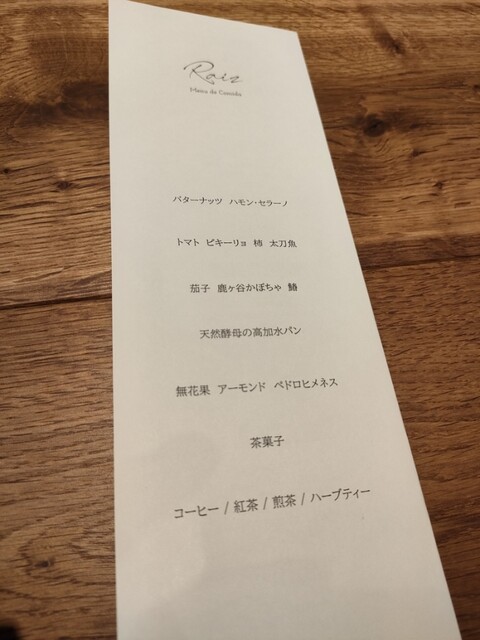 Raiz
Menu de Comida
バターナッツ ハモン・セラーノ
トマト ピキーリョ 柿 太刀魚
茄子 鹿ヶ谷かぼちゃ 鰆
天然酵母の高加水パン
無花果 アーモンド ペドロヒメネス
茶菓子
コーヒー / 紅茶 / 煎茶 / ハーブティー